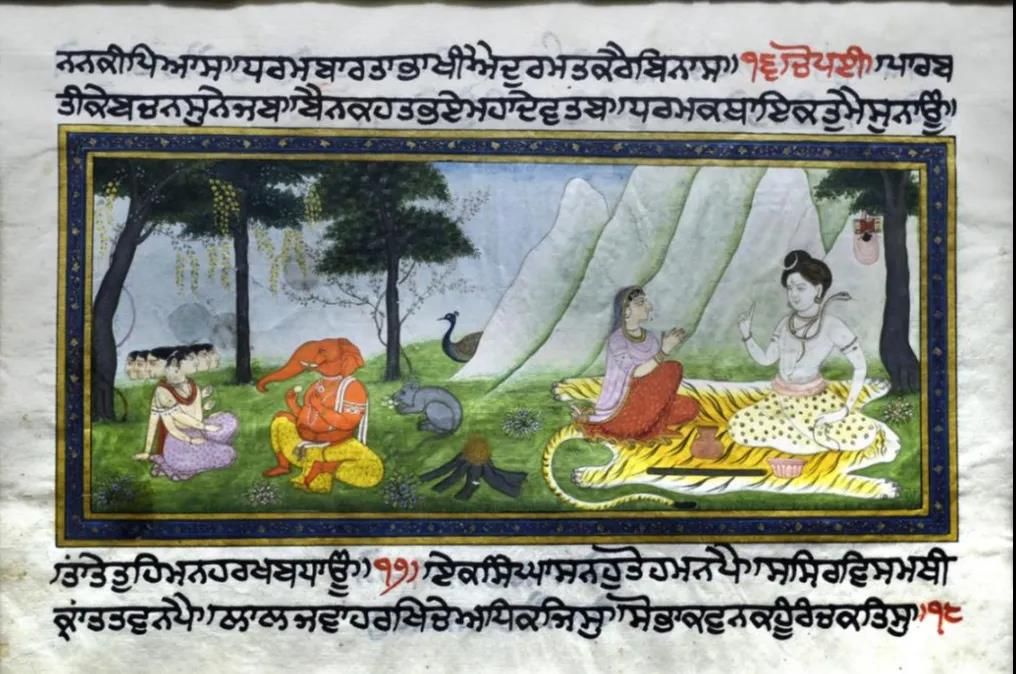 ਨਨਕੀਪਿਆਸ॥ਪਰਮਬਾਰਤਾਭਾਖੀਐਦੁਰਮਤਕਰੈਬਿਨਾਸ॥੧੬॥ਚੌਪਈ॥ਪਾਰਬ
ਤੀਕੇਬਚਨਸੁਨੇਜਬਾ॥ਬੈਨਕਹਤਭਏਮਹਾਂਦੇਵਤਬਾ॥ਪਰਮਕਥਾਇਕਤੁਮੈਸੁਨਾਊਂ॥
ਤਾਂਤੇਤੁਹਿਮਨਹਰਖਬਧਾਊਂ॥੧੭॥ਏਕਸਿੰਘਾਸਨਹੁਤੋਹਮਨਪੈ॥ਸਸਿਰਵਿਸਮਥੀ
ਕ੍ਰਾਂਤਤਵਨਪੈ॥ਲਾਲਜਵਾਹਰਖਿਚੇਅਧਿਕਜਿਸੁ॥ਸੋਭਾਕਵਨਕਹੂੰਰੰਚਕਤਿਸੁ॥੧੮